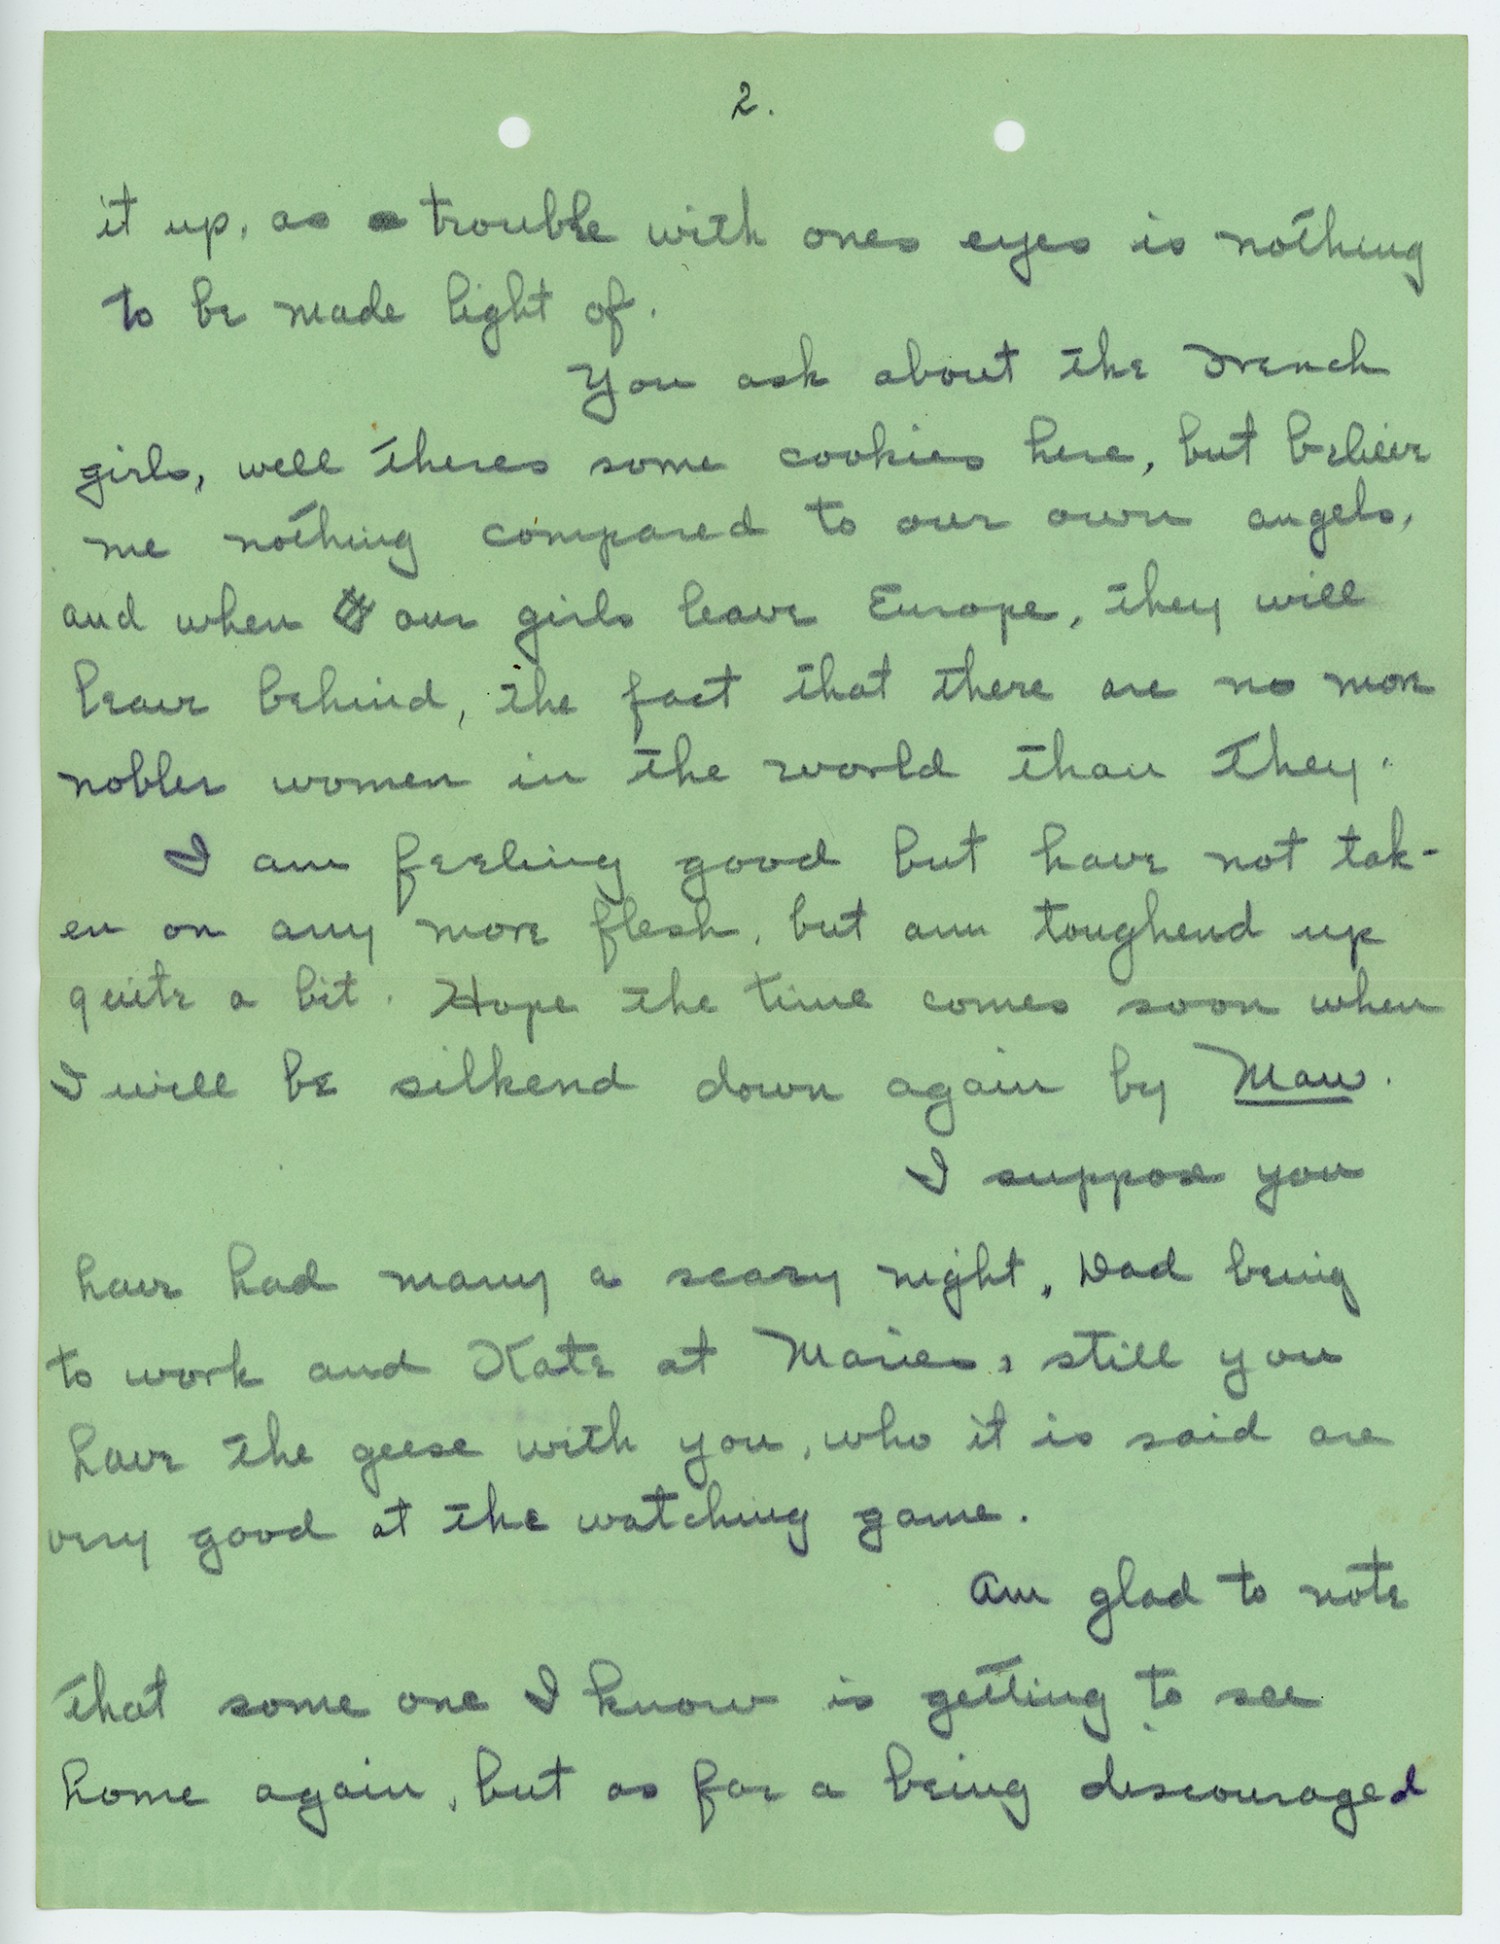 2.
it up, as trouble with ones eyes is nothing
to be made light of.
You ask about the French
girls, well theres some cookies here, but believe
me nothing compared to our own angels,
and when our girls leave Europe, they will
leave behind, the fact that there are no more
nobler women in the world than they.
I am feeling good but have not tak-
en on any more flesh, but am toughend up
quite a bit. Hope the time comes soon when
I will be silkend down again by Maw.
I suppose you
have had many a scary night, Dad being
to work and Kate at Maries, still you
have the geese with you, who it is said are
very good at the watching game.
Am glad to note
that some one I know is getting to see
home again, but as far a being discouraged